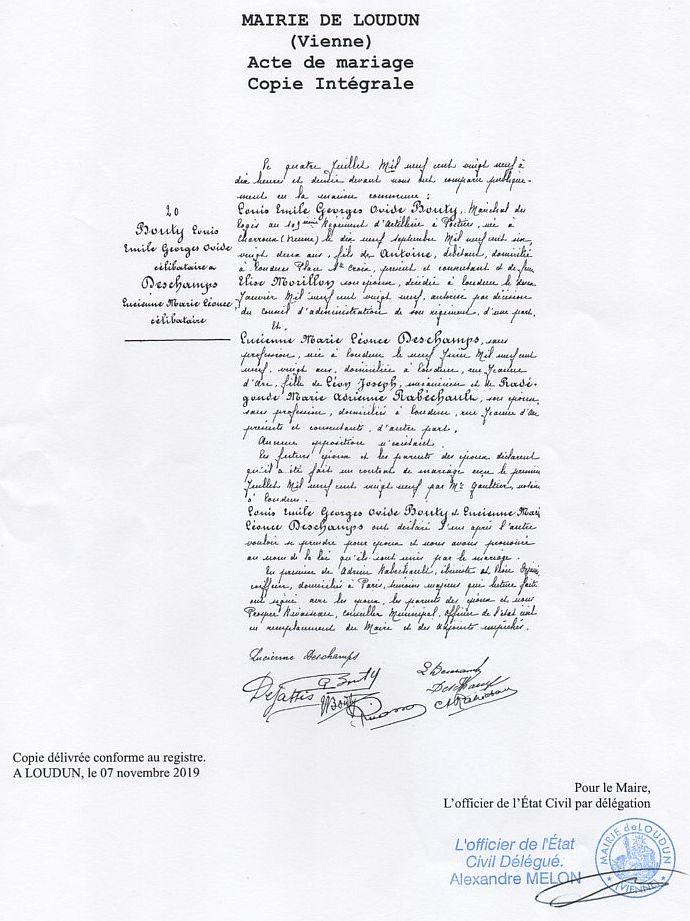 MAIRIE DE LOUDUN
(Vienne)
Acte de mariage
Copie Intégrale
20
Bouty Louis
Emile Georges Ovide
célibataire &
Deschamps
Lucienne Marie Léonce
célibataire
Le quatre Juillet Mil neuf cent vingt neuf à
dix heures et demie devant nous ont comparu publique-
ment en la maison commune :
Louis Emile Georges Ovide Bouty, Maréchal des
logis au 109ème Régiment d'Artillerie à Poitiers, né à
Charroux (Vienne) le dix neuf septembre Mil neuf cent six,
vingt deux ans, fils de Antoine, débitant, domicilié
à Loudun Place Ste Croix, présent et consentant et de feue
Elise Morillon son épouse, décédée à Loudun le
Janvier Mil neuf cent vingt neuf, autorisé par décision
du conseil d'administration de son régiment, d'une part.
Et.
Lucienne Marie Léonce Deschamps, sans
profession, née à Loudun le neuf Juin Mil neuf cent
neuf, vingt ans, domiciliée à Loudun, rue Jeanne
d'Arc, fille de Léon Joseph, mécanicien et de Radé-
gonde Marie Adrienne Rabéchault, son épouse,
sans profession, domiciliés à Loudun, rue Jeanne d'Arc
présents et consentants, d'autre part.
Aucune opposition n'existant.
Les futurs époux et les parents des époux déclarent
qu'il a été fait un contrat de mariage reçu le premier
Juillet Mil neuf cent vingt neuf par Me Gaultier, notaire
à Loudun.
Louis Emile Georges Ovide Bouty et Lucienne Marie
Léonce Deschamps ont déclaré l'un après l'autre
vouloir se prendre pour époux et nous avons prononcé
au nom de la loi qu'ils sont unis par le mariage.
En présence de Adrien Rabéchault, ébéniste et
coiffeur, domiciliés à Paris, témoins majeurs qui lecture faite
ont signé avec les époux, les parents des époux et nous
Prosper Conseiller Municipal, officier de l'état civil
en remplacement du Maire et des adjoints empêchés.
Lucienne Deschamps
Bouty
Bouty
Deschamps
Copie délivrée conforme au registre.
A LOUDUN, le 07 novembre 2019
Pour le Maire,
L'officier de l'État Civil par délégation
L'officier de l'État
Civil Délégué.
Alexandre MELON
MAIRIE de LOUDUN
(VIENNE)